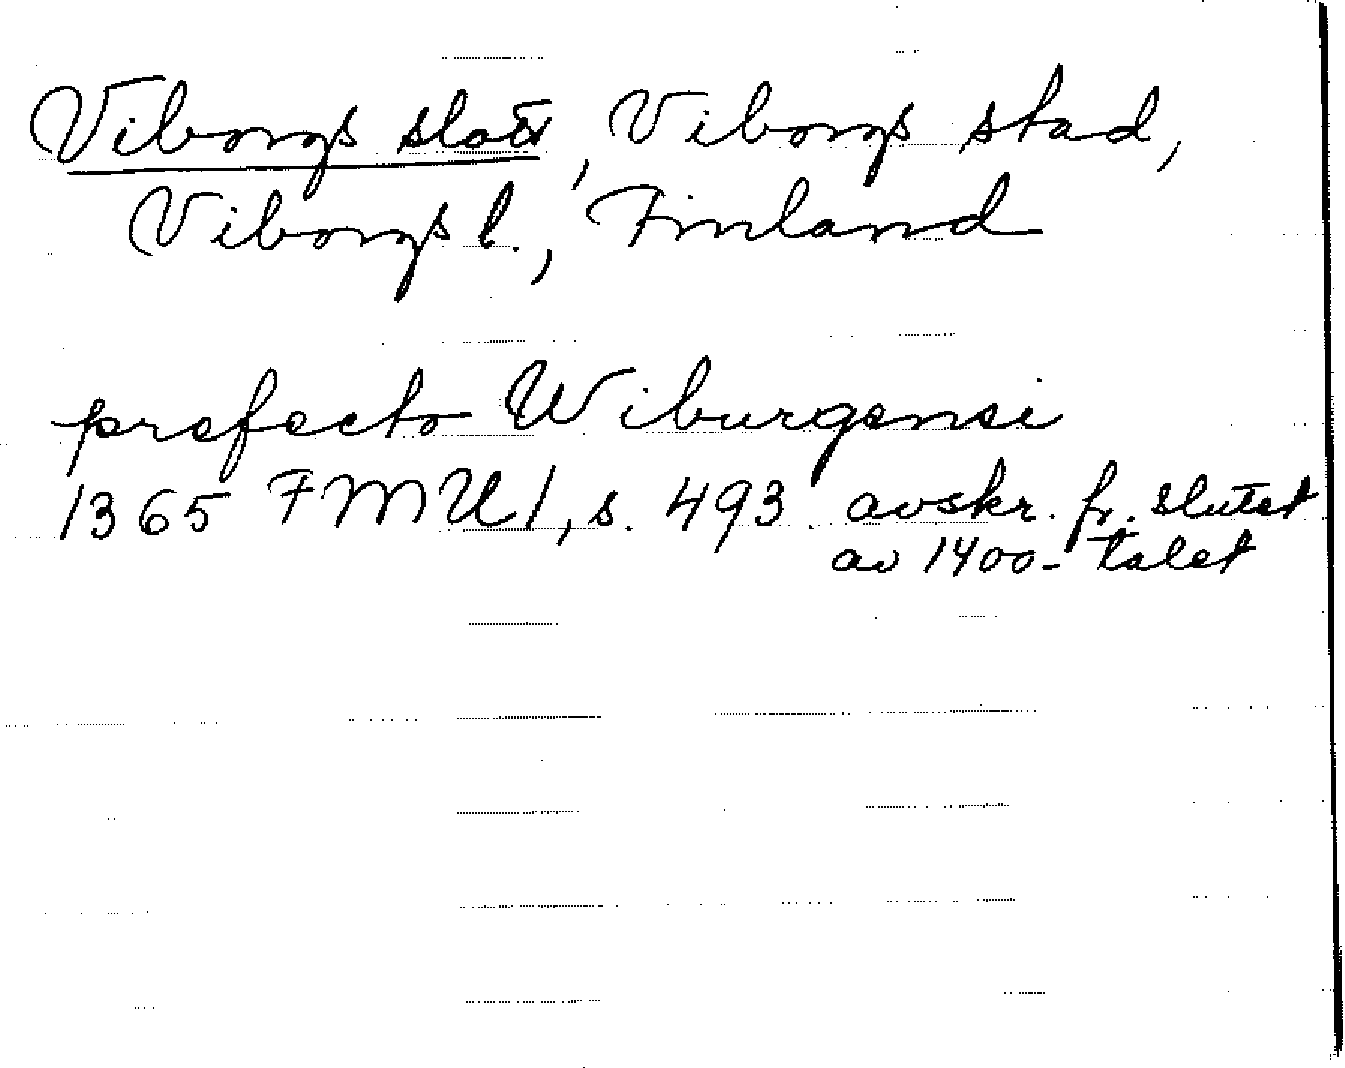 Viborgs slott, Viborgs stad,
Viborgs l., Finland
prefecto Wiburgensi
1365 FMU 1, s. 493 avskr. fr. slutet
av 1400-talet